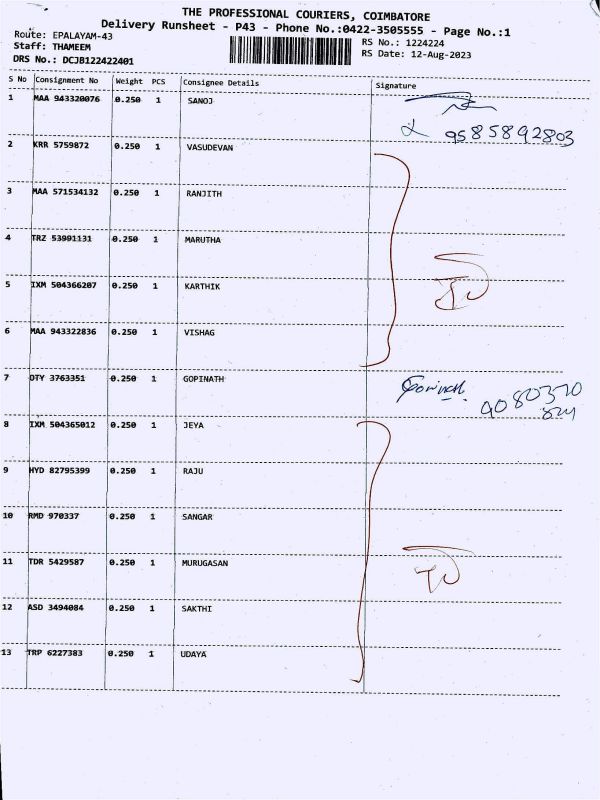 THE PROFESSIONAL COURIERS, COIMBATORE
Delivery Runsheet - P43 - Phone No.:0422-3505555 - Page No.:1
Route: EPALAYAM-43
Staff: THAMEEM
DRS No.: DCJB122422401
RS No.: 1224224
RS Date: 12-Aug-2023
S No Consignment No Weight PCS Consignee Details Signature
1 MAA 943320076 0.250 1 SANOJ
9585892803
2 KRR 5759872 0.250 1 VASUDEVAN
3 MAA 571534132 0.250 1 RANJITH
4 TRZ 53991131 0.250 1 MARUTHA
5 IXM 504366207 0.250 1 KARTHIK
6 MAA 943322836 0.250 1 VISHAG
7 OTY 3763351 0.250 1 GOPINATH Gopinath 9080370
824
8 IXM 504365012 0.250 1 JEYA
9 HYD 82795399 0.250 1 RAJU
10 RMD 970337 0.250 1 SANGAR
11 TDR 5429587 0.250 1 MURUGASAN
12 ASD 3494084 0.250 1 SAKTHI
13 TRP 6227383 0.250 1 UDAYA